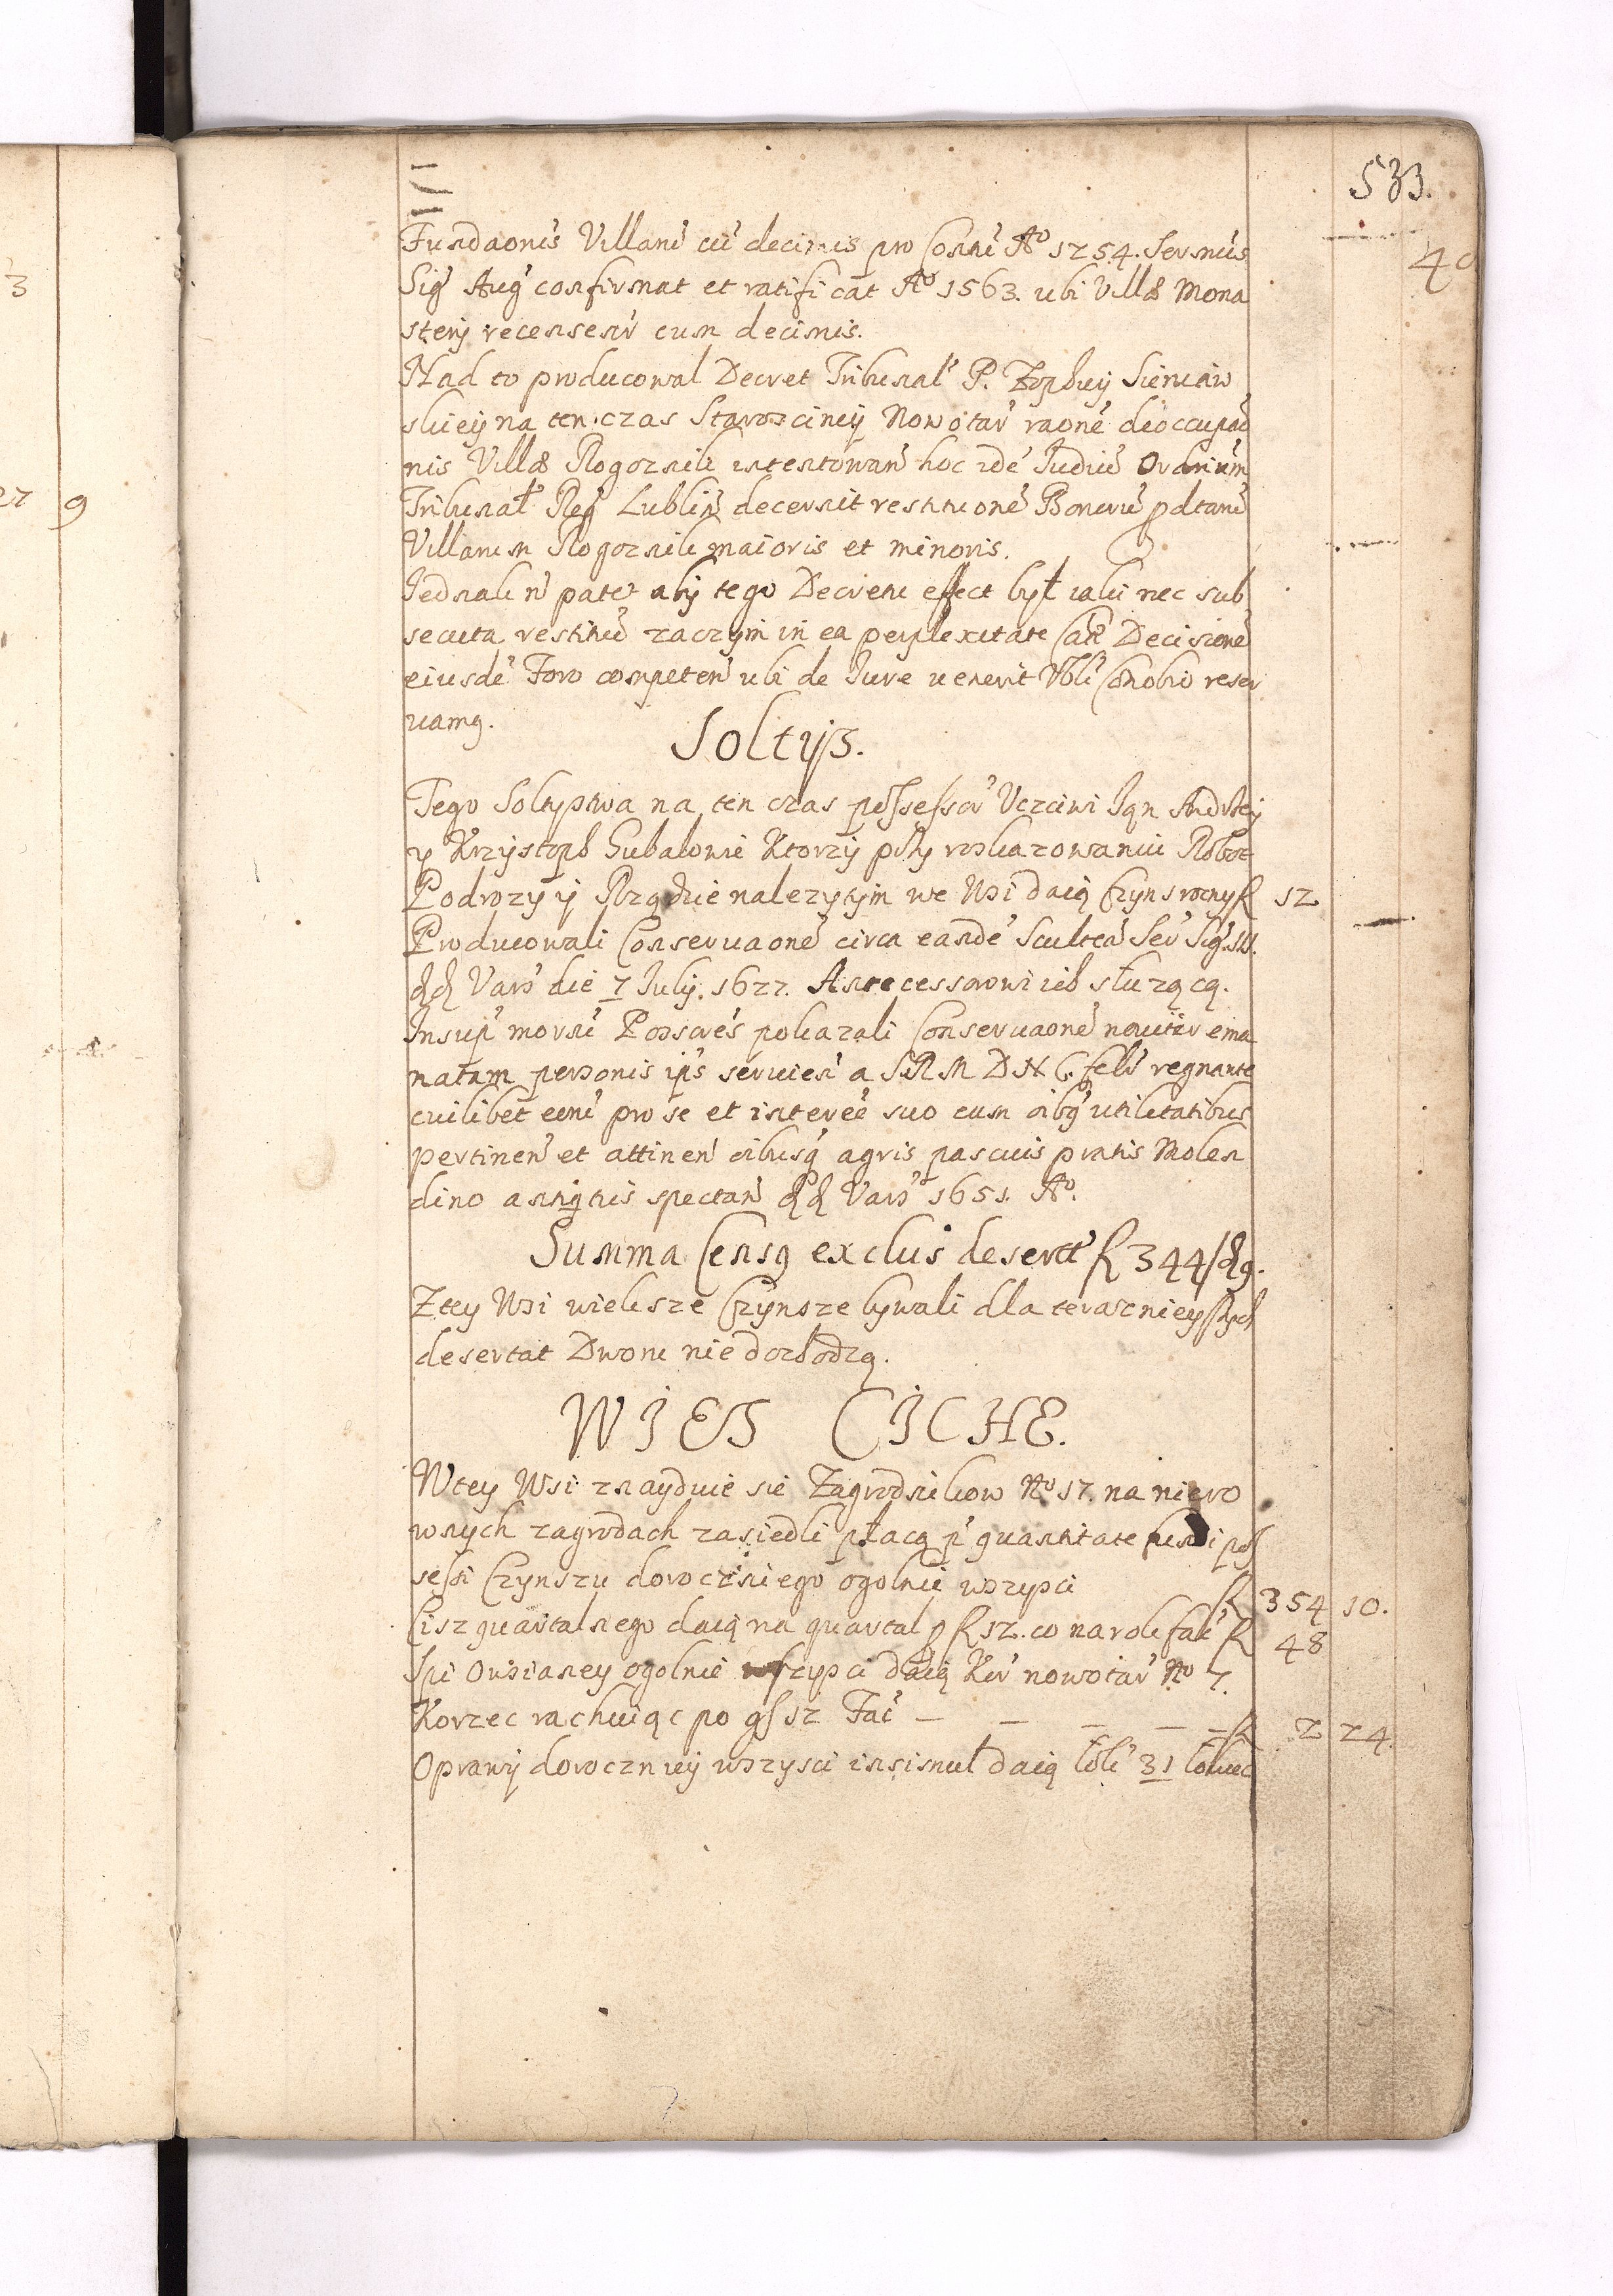 533.
40
Fundaonis Villaru cu decimis pro Conu Aº 1254. Sermus
Sig Aug confirmat et ratificat Aº 1563. ubi Villæ Mona
sterij recensent cum decimis.
Nad to producował Decret Tribunal P. Zophij Sieniaw
skiej na ten czas Starosciney Nowotar raone deoccupao
nis Villæ Rogoznik intentowan hoc ide Iudiu Ordrium
Tribunal Reg Lublin decernit restituone Bonoru pdtaru
Villarum Rogoznik maioris et minoris.
Iednak n patet aby tego Decretu effect był iaki nec sub
secuta restitu zaczym in ea perplexitate Decisione
eiusde Foro competen ubi de Iure uenerit Vbli Conobio reser
uamq.
Soltys.
Tego Soltystwa na ten czas possessor Uczciwi Jan Andrzey
y Krzysztoph Gubalowie Ktorzy przy roskazowaniu Robot
Podrozy y Rządzie nalezytym we Wsi daią Czynsz roczny fl 12
Producowali Conseruaone circa eande Scultea Ser Sig III.
dd Vars die 7 July. 1627. Antecessorowi ich służącą.
Insup morsu Possores pokazali Conseruaone nouiter ema
natam personis ips seruien a S R M D N C. felr regnante
cuilibet eoru pro se et interee suo cum oibq utilitatibus
pertinen et attinen oibusq agris pascuis pratis Molen
dino antiqtis spectan dd Vars 1651. Aº.
Summa Censq exclus desertt fl 344/ 9.
Z tey Wsi wieksze Czynsze bywali dla teraznieyszych
desertat Dworu nie dochodzą.
WIES CICHE.
W tey Wsi znayduie sie Zagrodnikow Nº 17. na niero
wnych zagrodach zasiedli płacą p quantitate fundi pos
sessi Czynszu dorocznego ogolnie wszysci fl 354 10.
Cisz quartalnego daią na quartal p fl 12. co na rok fac fl 48
Spi Owsianey ogolnie wszysci daią Kor nowotar Nº 7.
Korzec rachuiąc po gs 12 Fac — — — — — fl 2 24.
Oprawy doroczniey wszysci insimul daią łok 31 łokiec